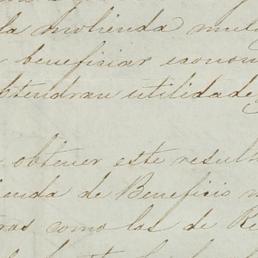 la molienda
beneficiar econom
btendran utilidade
obtener este resul
enda de Beneficio
ras como las de Re